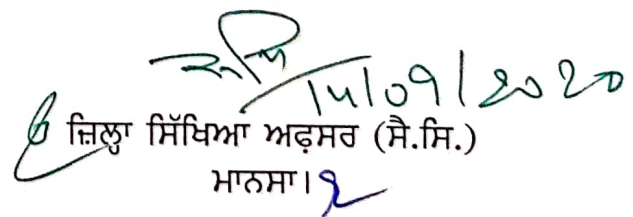 15/09/2020
ਜ਼ਿਲ੍ਹਾ ਸਿੱਖਿਆ ਅਫ਼ਸਰ (ਸੈ.ਸਿ.)
ਮਾਨਸਾ।